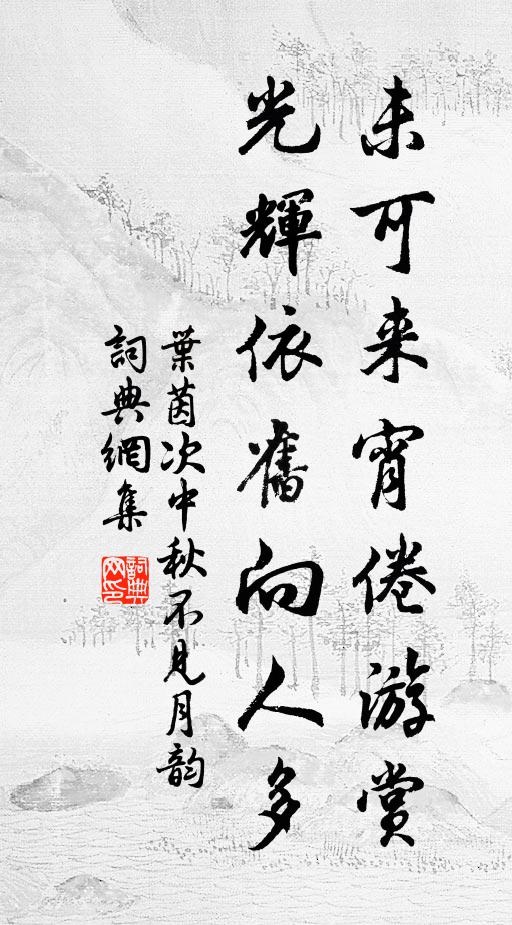 未可来宵倦游赏
光輝依舊向人多
葉茵次中秋不見月韵
詞典網集
詞典网印